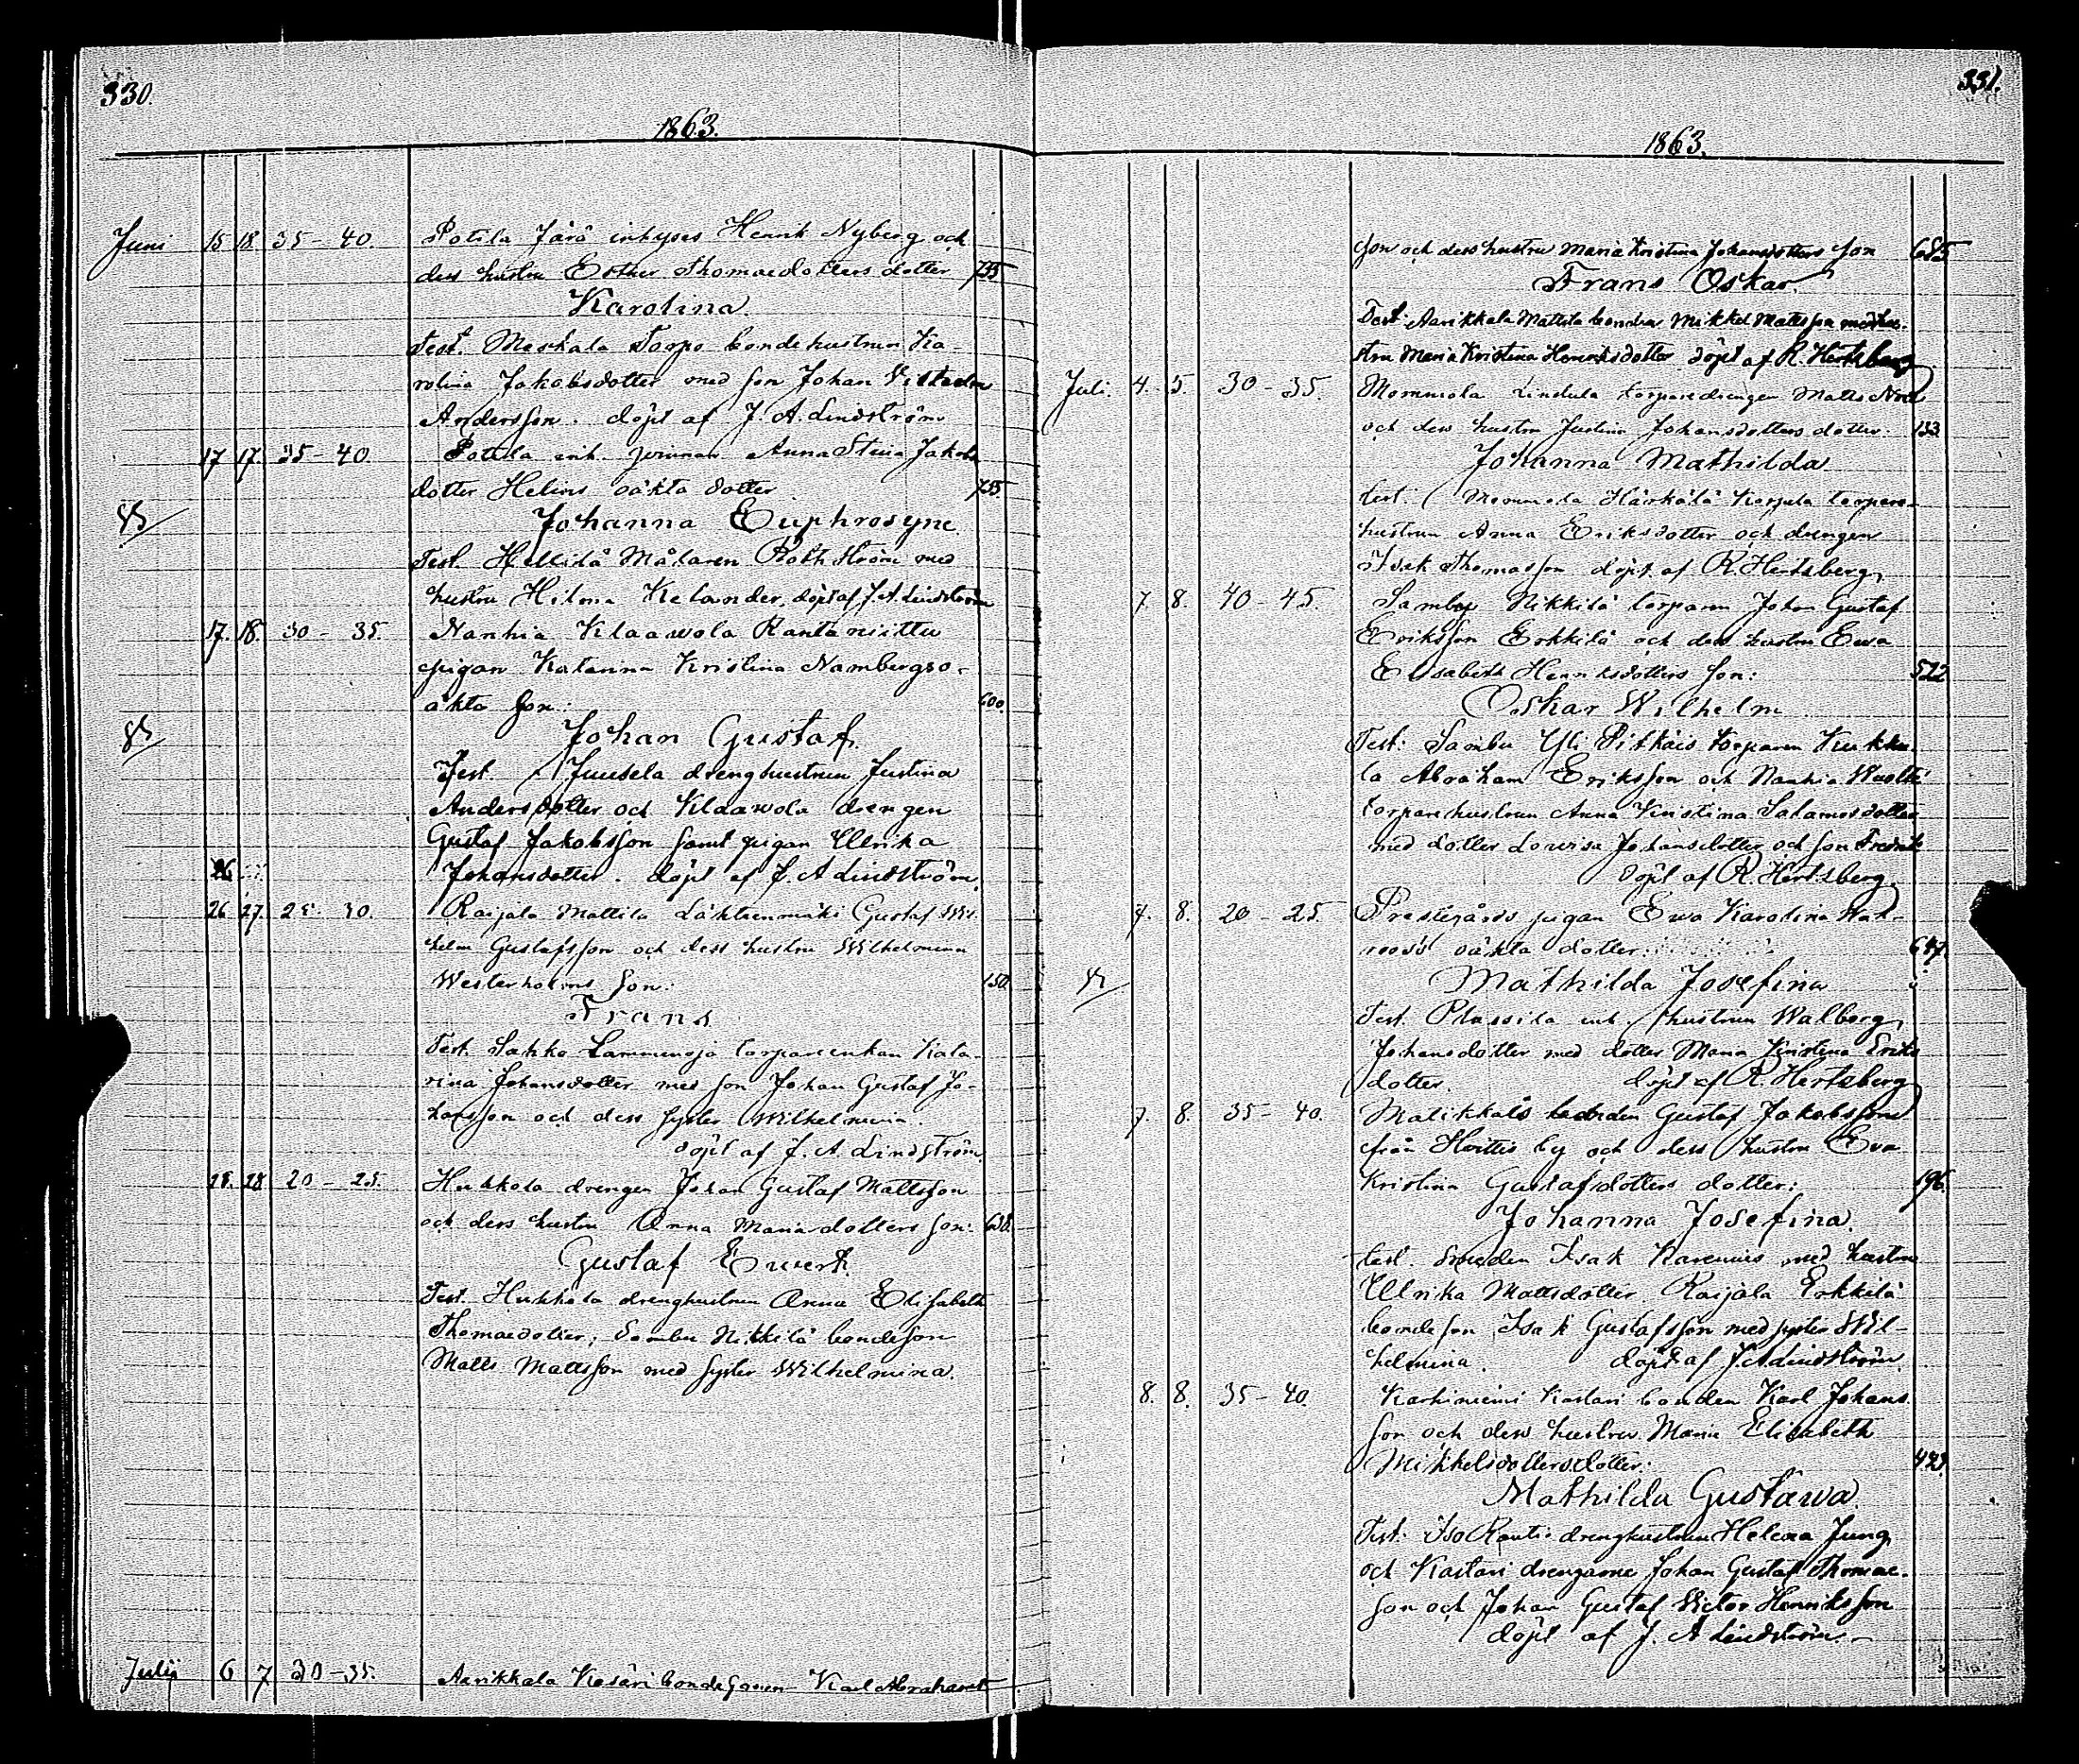 330.
1863.
Juni 15 18 35 - 40. Potila Järä inhyses Henrik Nyberg och
dess hustru Esther Thomaedotters dotter 735
Karolina.
Test. Maskala Torpo bondehustrun Ka-
rolina Jakobsdotter med son Johan
Andersson. döpt af J. A. Lindström
17 17. 35 - 40. Potila inh. Anna Stina Jakobs
dotter Helins oäkta dotter 735.
Johanna Euphrosyne.
Test. Hellilä Målaren Rothström med
hustru Hilma Kelander, döpt af J. A. Lindström
17. 18. 30 - 35. Nanhia Klaawola Rantaniittu
pigan Katarina Kristina Nambergs o-
äkta son: 600.
Johan Gustaf.
Test. Juusela drenghustrun Justina
Andersdotter och Klaawola drengen
Gustaf Jakobsson samt pigan Ulrika
26 Johansdotter. döpt af J. A Lindström.
26 27. 25 - 30. Raijala Mattila Gustaf Wil-
helm Gustafsson och dess hustru Wilhelmina
Westerholms son: 150.
Frans
Test. Sakko Lammenoja torpareenkan Kata-
rina Johansdotter med son Johan Gustaf Jo-
hansson och dess syster Wilhelmina.
döpt af J. A. Lindström.
28. 28 20 - 25. Hukkala drengen Johan Gustaf Mattsson
och dess hustru Anna Maria dotters son:
Gustaf Ewert.
Test. Hukkala drenghustrun Anna Elisabeth
Thomaedotter; Sambu Nikkilä bondeson
Matts Mattsson med syster Wilhelmina.
Julij 6 7 30 - 35. Aarikkala Kasäri bondesonen Karl Abrahams
331.
1863.
son och dess hustru Maria Kristina Johansdotters son 685
Frans Oskar.
Test: Aarikkala Mattila bonden Mikkel Mattsson med hu-
stru Maria Kristina Henriksdotter döpt af R. Hertsberg
Juli. 4. 5. 30 - 35. Mommola Lindula torparedrengen Matts
och dess hustru Justina Johansdotters dotter. 133
Johanna Mathilda
test. Mommola Härkälä Karjula torpare-
hustrun Anna Eriksdotter och drengen
Isak Thomasson döpt af R. Hertsberg,
7. 8. 40 - 45. Sambu Nikkilä torparen Johan Gustaf
Eriksson Erkkilä och dess hustru Ewa
Elisabeth Henriksdotters son: 522
Oskar Wilhelm
Test: Sambu Yli Pitkäis torparen Kukku-
la Abraham Eriksson och Nanhia
torparehustrun Anna Kristina Salamosdotter
med dotter Lowisa Johansdotter och son Fredrik
döpt af R. Hertsberg.
7. 8. 20 - 25. Prestegårds pigan Ewa Karolina Wah-
roos's oäkta dotter: 647.
Mathilda Josefina
Test. Plassila inh. hustrun Walborg
Johansdotter med dotter Maria Kristina Eriks
dotter. döpt af R. Hertsberg
7. 8. 35 - 40. Malikkala bonden Gustaf Jakobssons
från Hoittis by och dess hustru Eva
Kristina Gustafsdotters dotter: 196.
Johanna Josefina.
test. Smeden Isak Karenius med hustru
Ulrika Mattsdotter, Raijala Erkkilä
bondeson Isak Gustafsson med syster Wil-
helmina. döpt af J. A. Lindström
8. 8. 35 - 40. Karhiniemi Kastari bonden Karl Johans-
son och dess hustru Maria Elisabeth
Mikkelsdotters dotter:
Mathilda Gustawa.
Test: Iso Rautio drenghustrun Helena Jung
och Kastari drengarne Johan Gustaf Thomae-
son och Johan Gustaf Victor Henriksson
döpt af J. A Lindström.